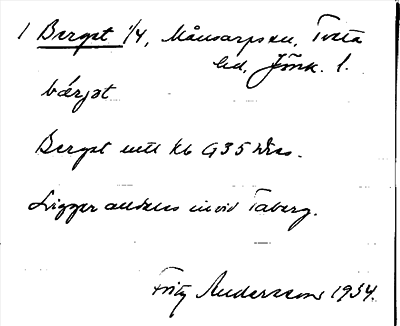 1 Berget 1/4, Månsarps sn, Tveta
hd, Jönk. l.
bærjət
Berget mtl kb G35
Ligger alldeles invid Taberg.
Fritz Andersson 1934.